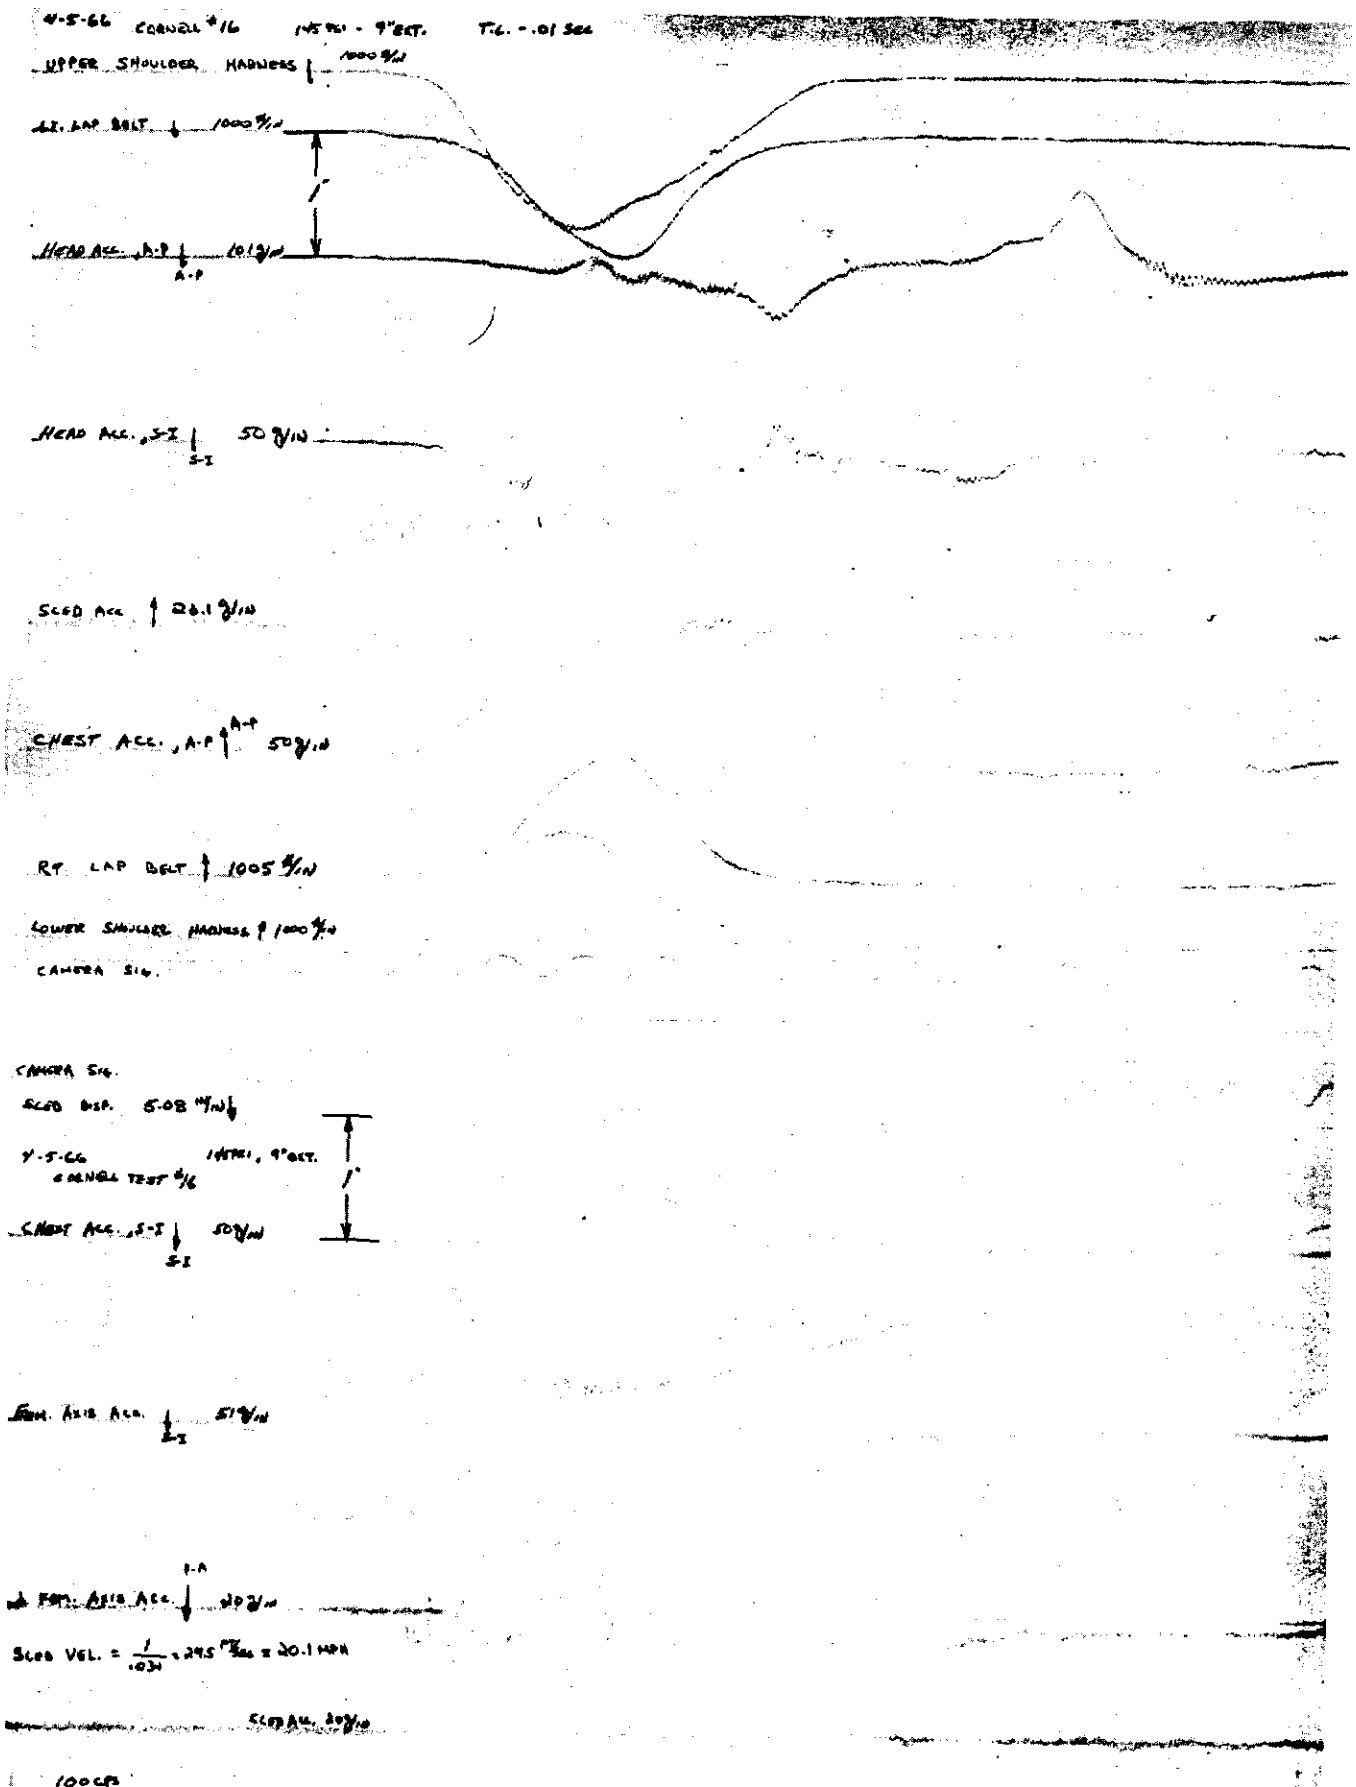 4-5-66 CORNELL #16 145 PSI - 9" EXT. T.L. - .01 SEC
UPPER SHOULDER HARNESS 1000 #/IN
LT. LAP BELT ↓ 1000 #/IN
1"
HEAD ACC., A-P ↓ 101 g/IN
A-P
HEAD ACC., S-I ↓ 50 g/IN
S-I
SLED ACC ↑ g/IN
CHEST ACC., A-P ↑ A-P 50 g/IN
RT. LAP BELT ↑ 1005 #/IN
LOWER SHOULDER HARNESS ↑ 1000 #/IN
CAMERA SIG.
CAMERA SIG.
SLED DISP. 5.08 IN/IN ↓
4-5-66 145 PSI, 9" EXT.
CORNELL TEST #16
1"
CHEST ACC., S-I ↓ 50 g/IN
S-I
FEM. AXIS ACC. ↓ 51 g/IN
S-I
P-A
⊥ FEM. AXIS ACC. ↓ 20 g/IN
SLED VEL. = 1/.034 = 29.5 FT/SEC = 20.1 MPH
SLED ACC. 20 g/IN
100 CPS